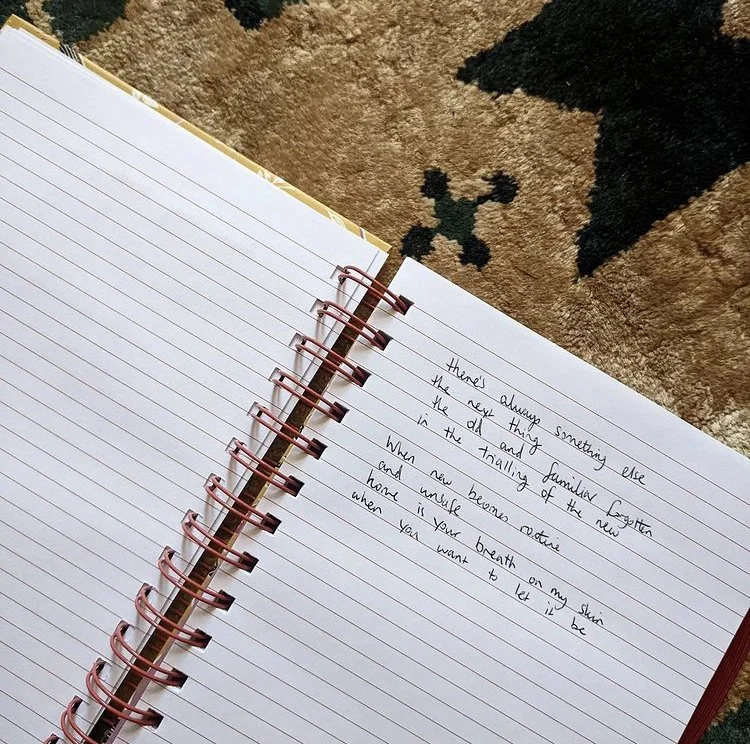 there's always something else
the next thing
the old and familiar forgotten
in the trialling of the new
When new becomes routine
and unsafe
home is your breath on my skin
when you want to let it be